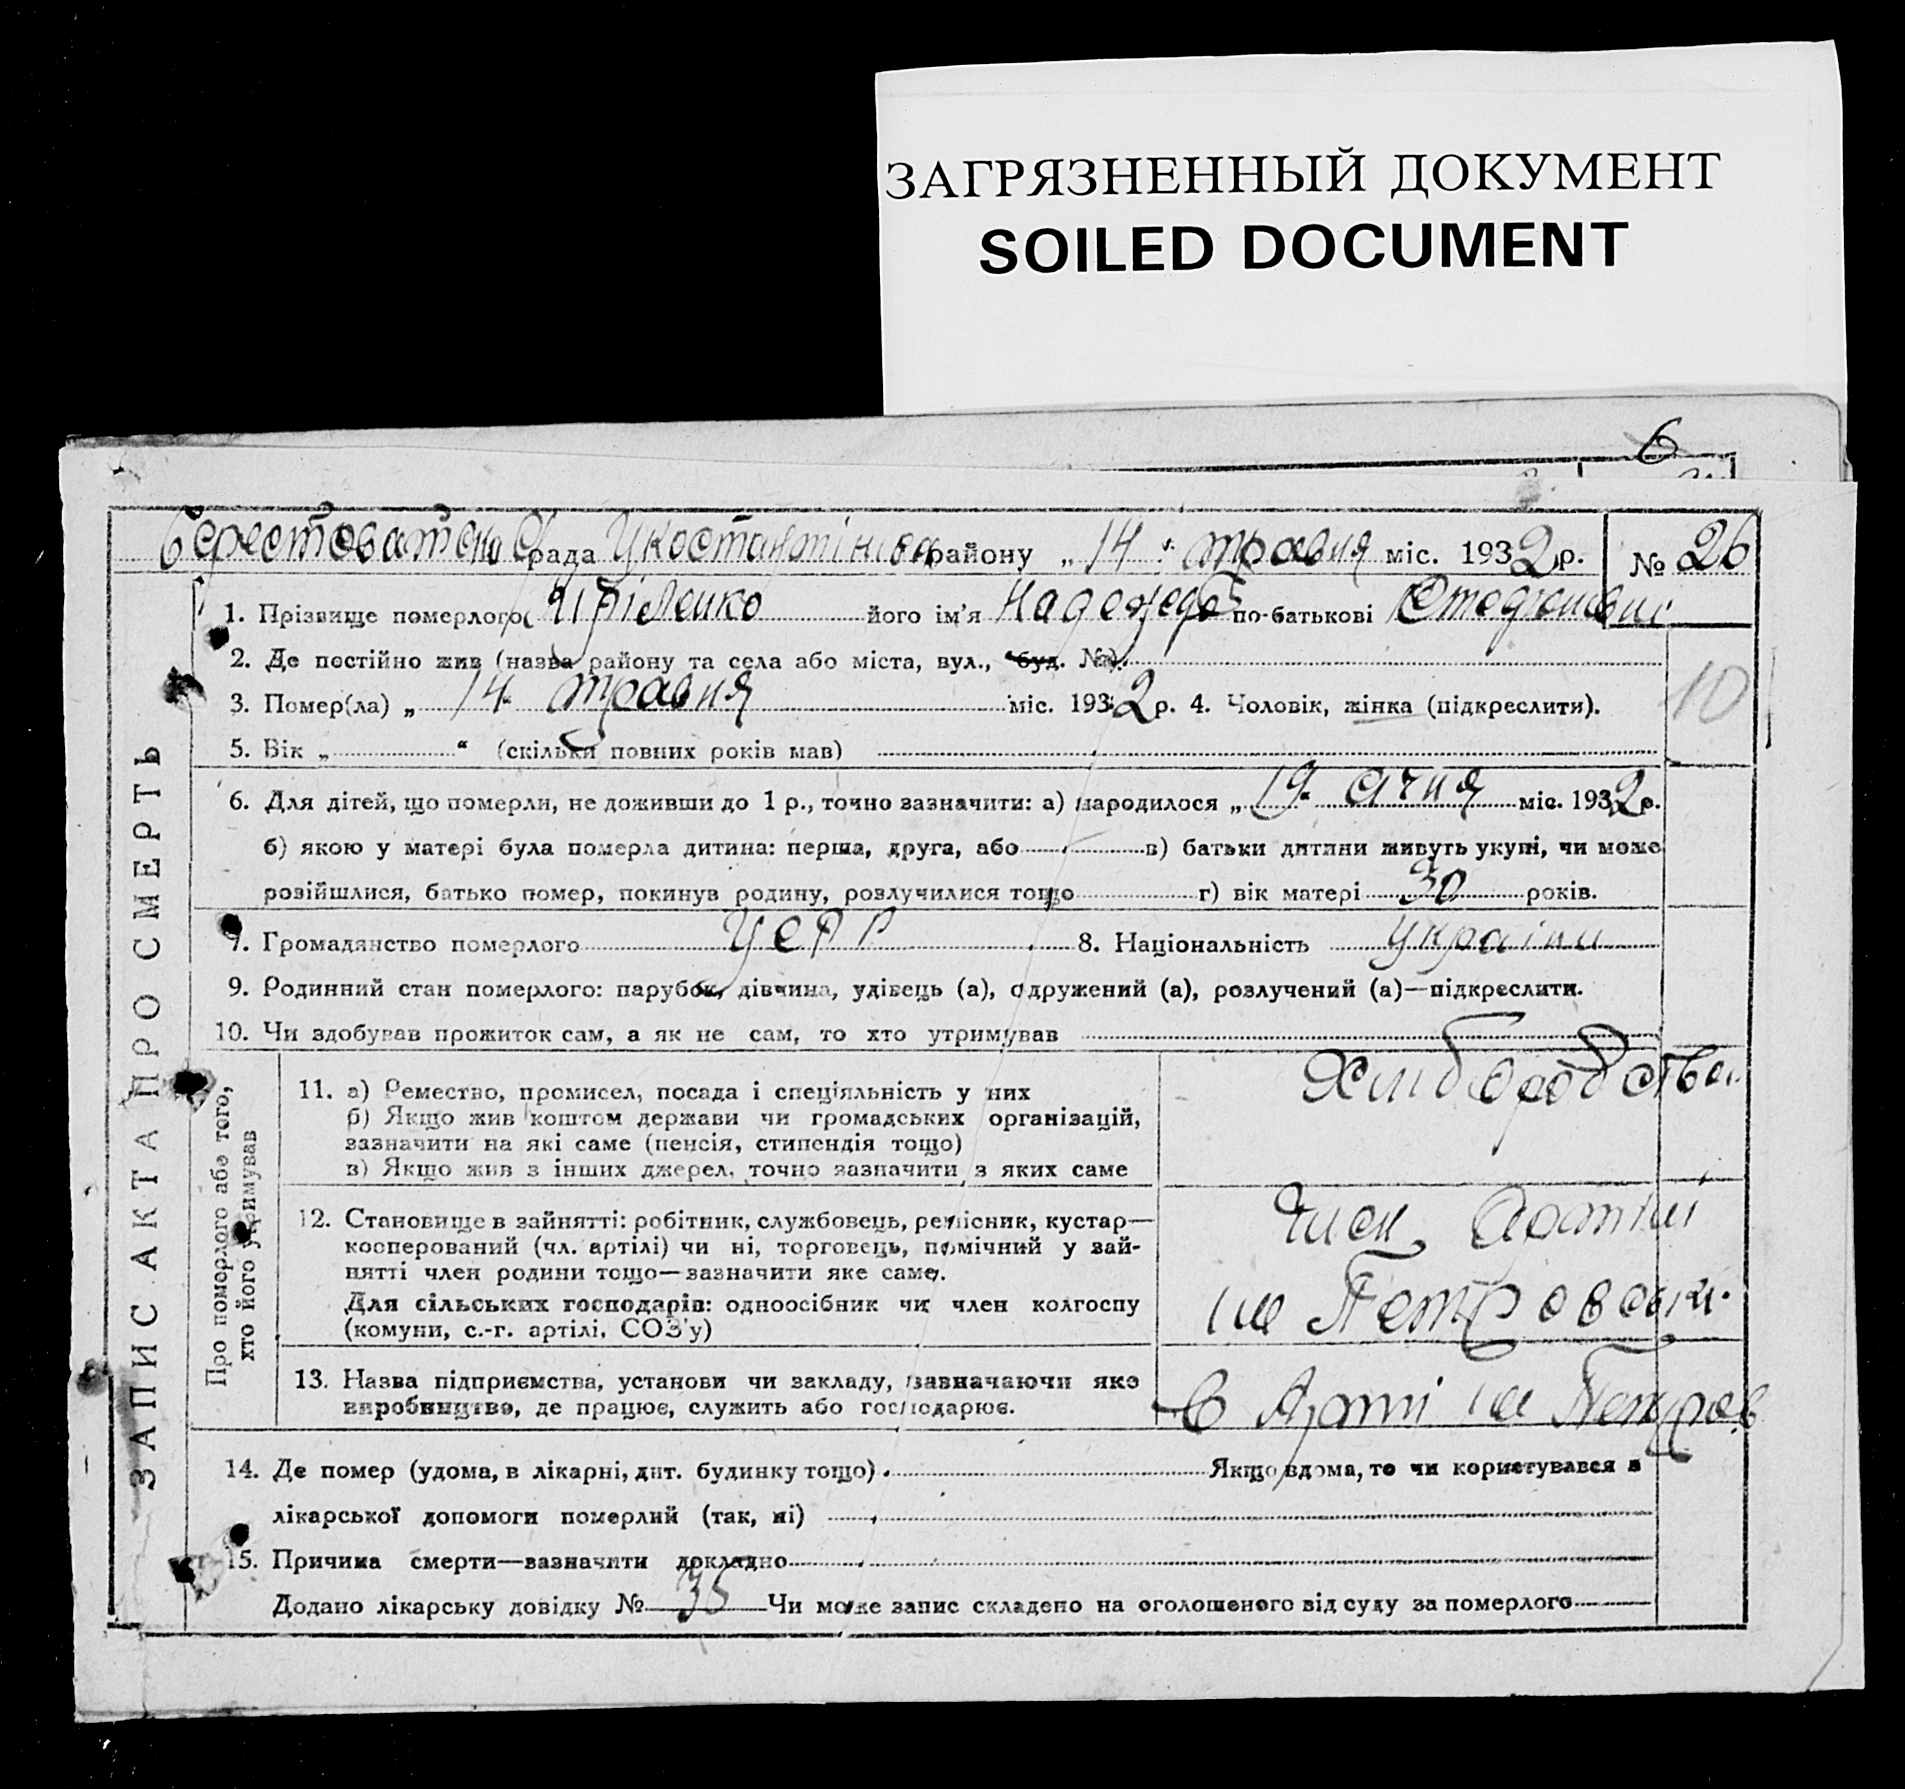 ЗАГРЯЗНЕННЫЙ ДОКУМЕНТ
SOILED DOCUMENT
6
рада району „14“ травня міс. 1932 р. № 26
1. Прізвище померлого його ім'я Надежда по-батькові
2. Де постійно жив (назва району та села або міста, вул., буд. №).
3. Помер(ла) „14“ травня міс. 1932 р. 4. Чоловік, жінка (підкреслити).
10
5. Вік „ “ (скільки повних років мав)
6. Для дітей, що померли, не доживши до 1 р., точно зазначити: а) народилося „19“ січня міс. 1932 р.
б) якою у матері була померла дитина: перша, друга, або в) батьки дитини живуть укупі, чи може
розійшлися, батько помер, покинув родину, розлучилися тощо г) вік матері 30 років.
7. Громадянство померлого УСРР 8. Національність
9. Родинний стан померлого: парубок, дівчина, удівець (а), одружений (а), розлучений (а)—підкреслити.
10. Чи здобував прожиток сам, а як не сам, то хто утримував
ЗАПИС АКТА ПРО СМЕРТЬ
Про померлого або того,
хто його утримував
11. а) Ремество, промисел, посада і спеціяльність у них
б) Якщо жив коштом держави чи громадських організацій,
зазначити на які саме (пенсія, стипендія тощо)
в) Якщо жив з інших джерел, точно зазначити з яких саме
12. Становище в зайнятті: робітник, службовець, ремісник, кустар—
кооперований (чл. артілі) чи ні, торговець, помічний у зай-
нятті член родини тощо—зазначити яке саме.
Для сільських господарів: одноосібник чи член колгоспу
(комуни, с.-г. артілі, СОЗ'у)
член Артілі
ім Петровськ.
13. Назва підприємства, установи чи закладу, зазначаючи яке
виробництво, де працює, служить або господарює.
в Арті ім Петров
14. Де помер (удома, в лікарні, дит. будинку тощо) Якщо вдома, то чи користувався з
лікарської допомоги померлий (так, ні)
15. Причина смерти—зазначити докладно
Додано лікарську довідку № 35 Чи може запис складено на оголошеного від суду за померлого